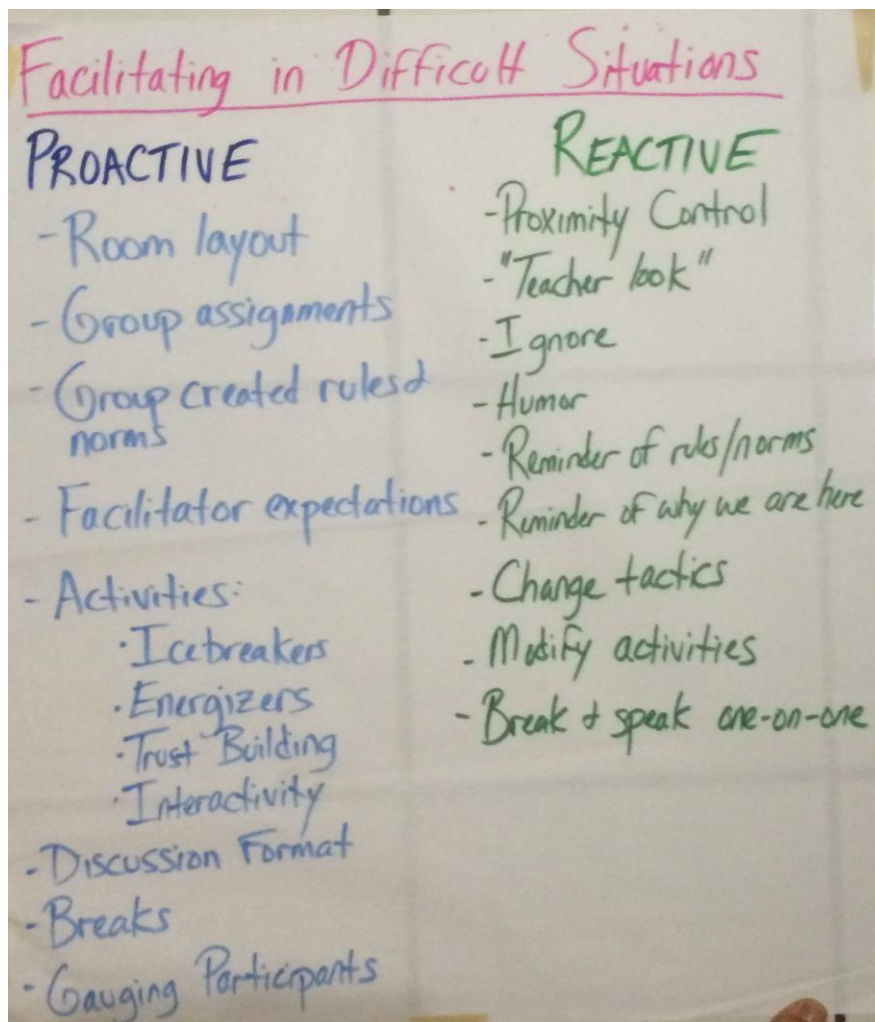 Facilitating in Difficult Situations
PROACTIVE
- Room layout
- Group assignments
- Group created rules &
norms
- Facilitator expectations
- Activities:
· Icebreakers
· Energizers
· Trust Building
· Interactivity
- Discussion Format
- Breaks
- Gauging Participants
REACTIVE
- Proximity Control
- "Teacher look"
- Ignore
- Humor
- Reminder of rules/norms
- Reminder of why we are here
- Change tactics
- Modify activities
- Break & speak one-on-one